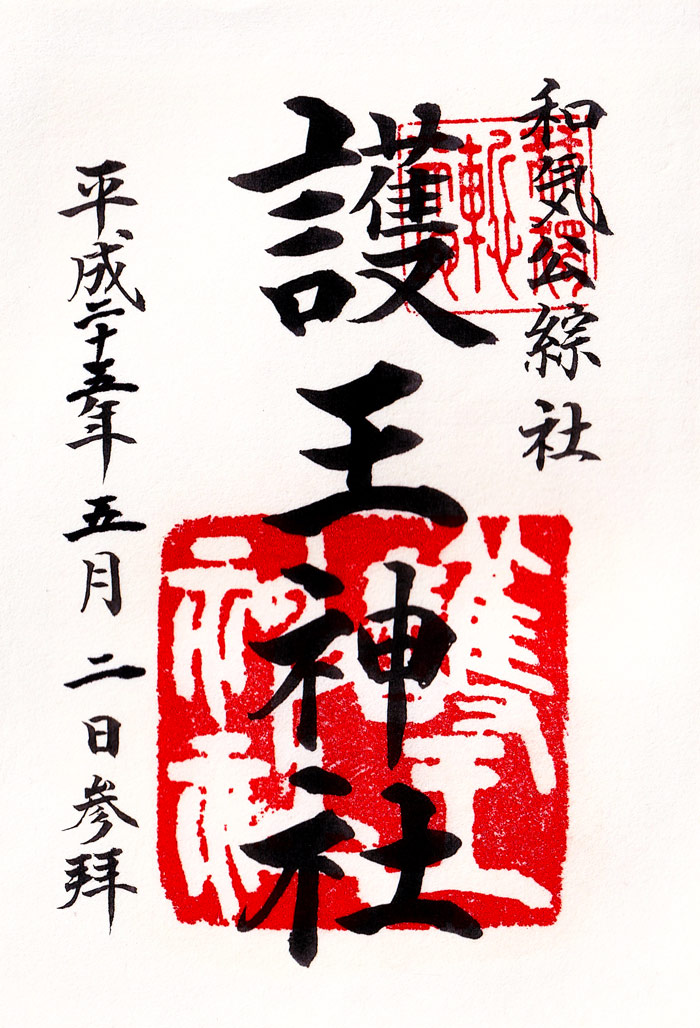 和気公綜社
護王神社
平成二十五年五月二日参拝
護王神社